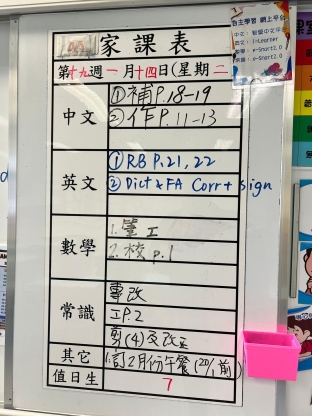 家課表
第十九週一月十四日(星期二
中文
①補P.18-19
②作P.11-13
英文
①RB P.21,22
②Dict & FA Corr + sign
數學
1.筆工
2.校p.1
常識
專改
工P.2
剪(4)及改工
其它
1.訂2月份午餐(20/1前)
值日生
7
自主學習 網上平台
i-Learner
e-Smart2.0
e-Smart2.0